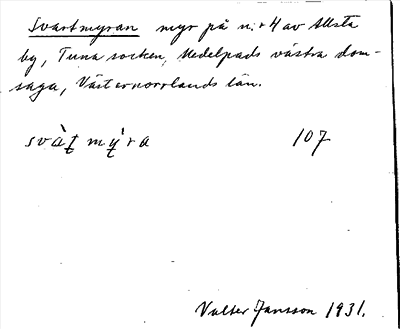 Svartmyran myr på n:r 4 av Allsta
by, Tuna socken, Medelpads västra dom-
saga, Västernorrlands län.
svàṭmy̆̀ra 107
Valter Jansson 1931.